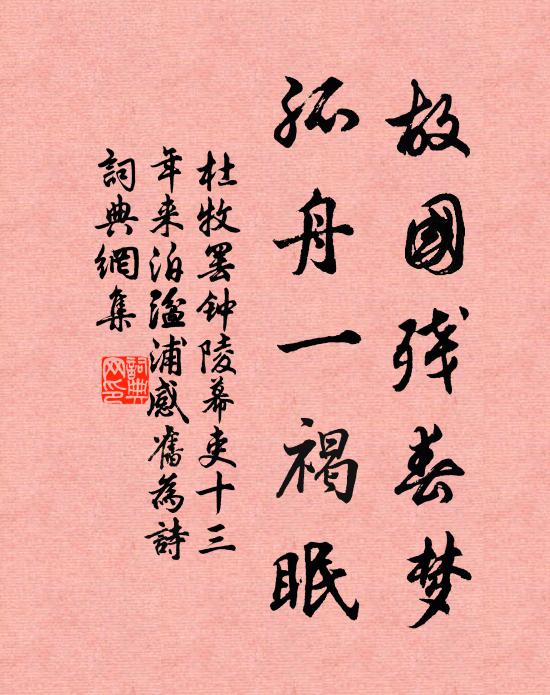 故國残春梦
孤舟一褐眠
杜牧罢钟陵幕吏十三
年来泊湓浦感舊為詩
詞典網集
詞典
网印